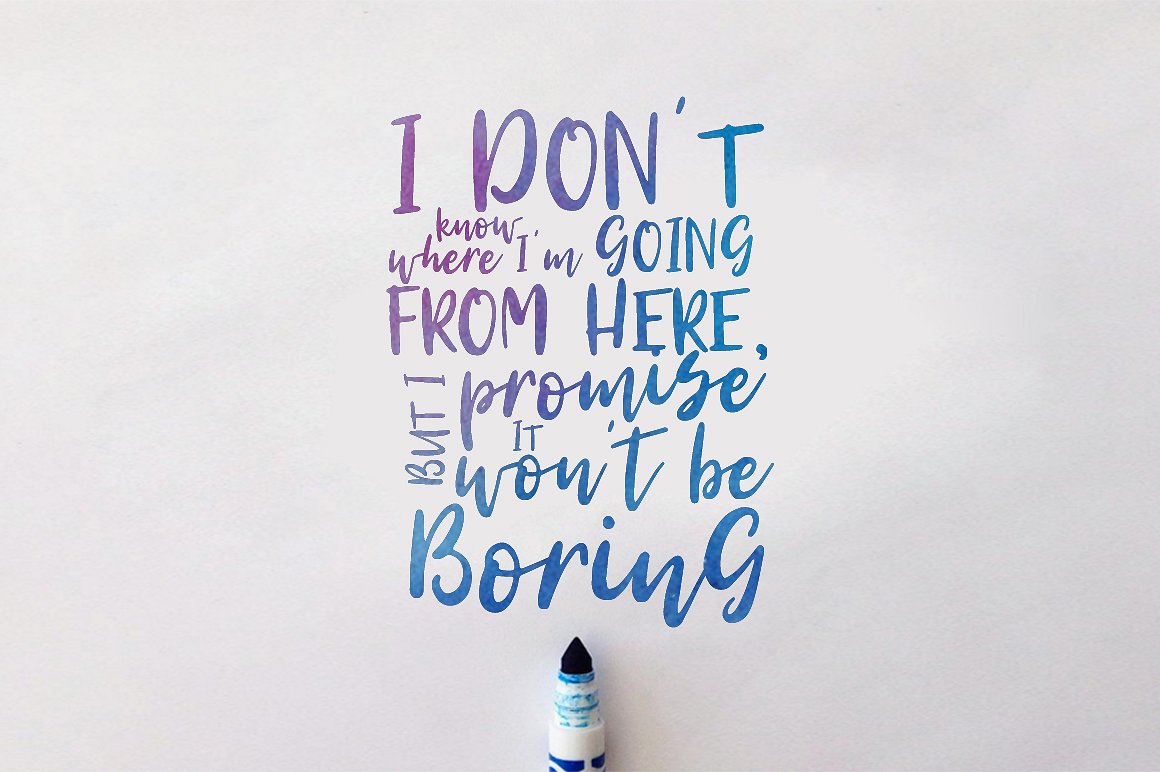 I DON'T
know
where I'm GOING
FROM HERE,
BUT I promise
IT
won't be
BorinG